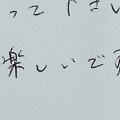 って下さい
楽しいで